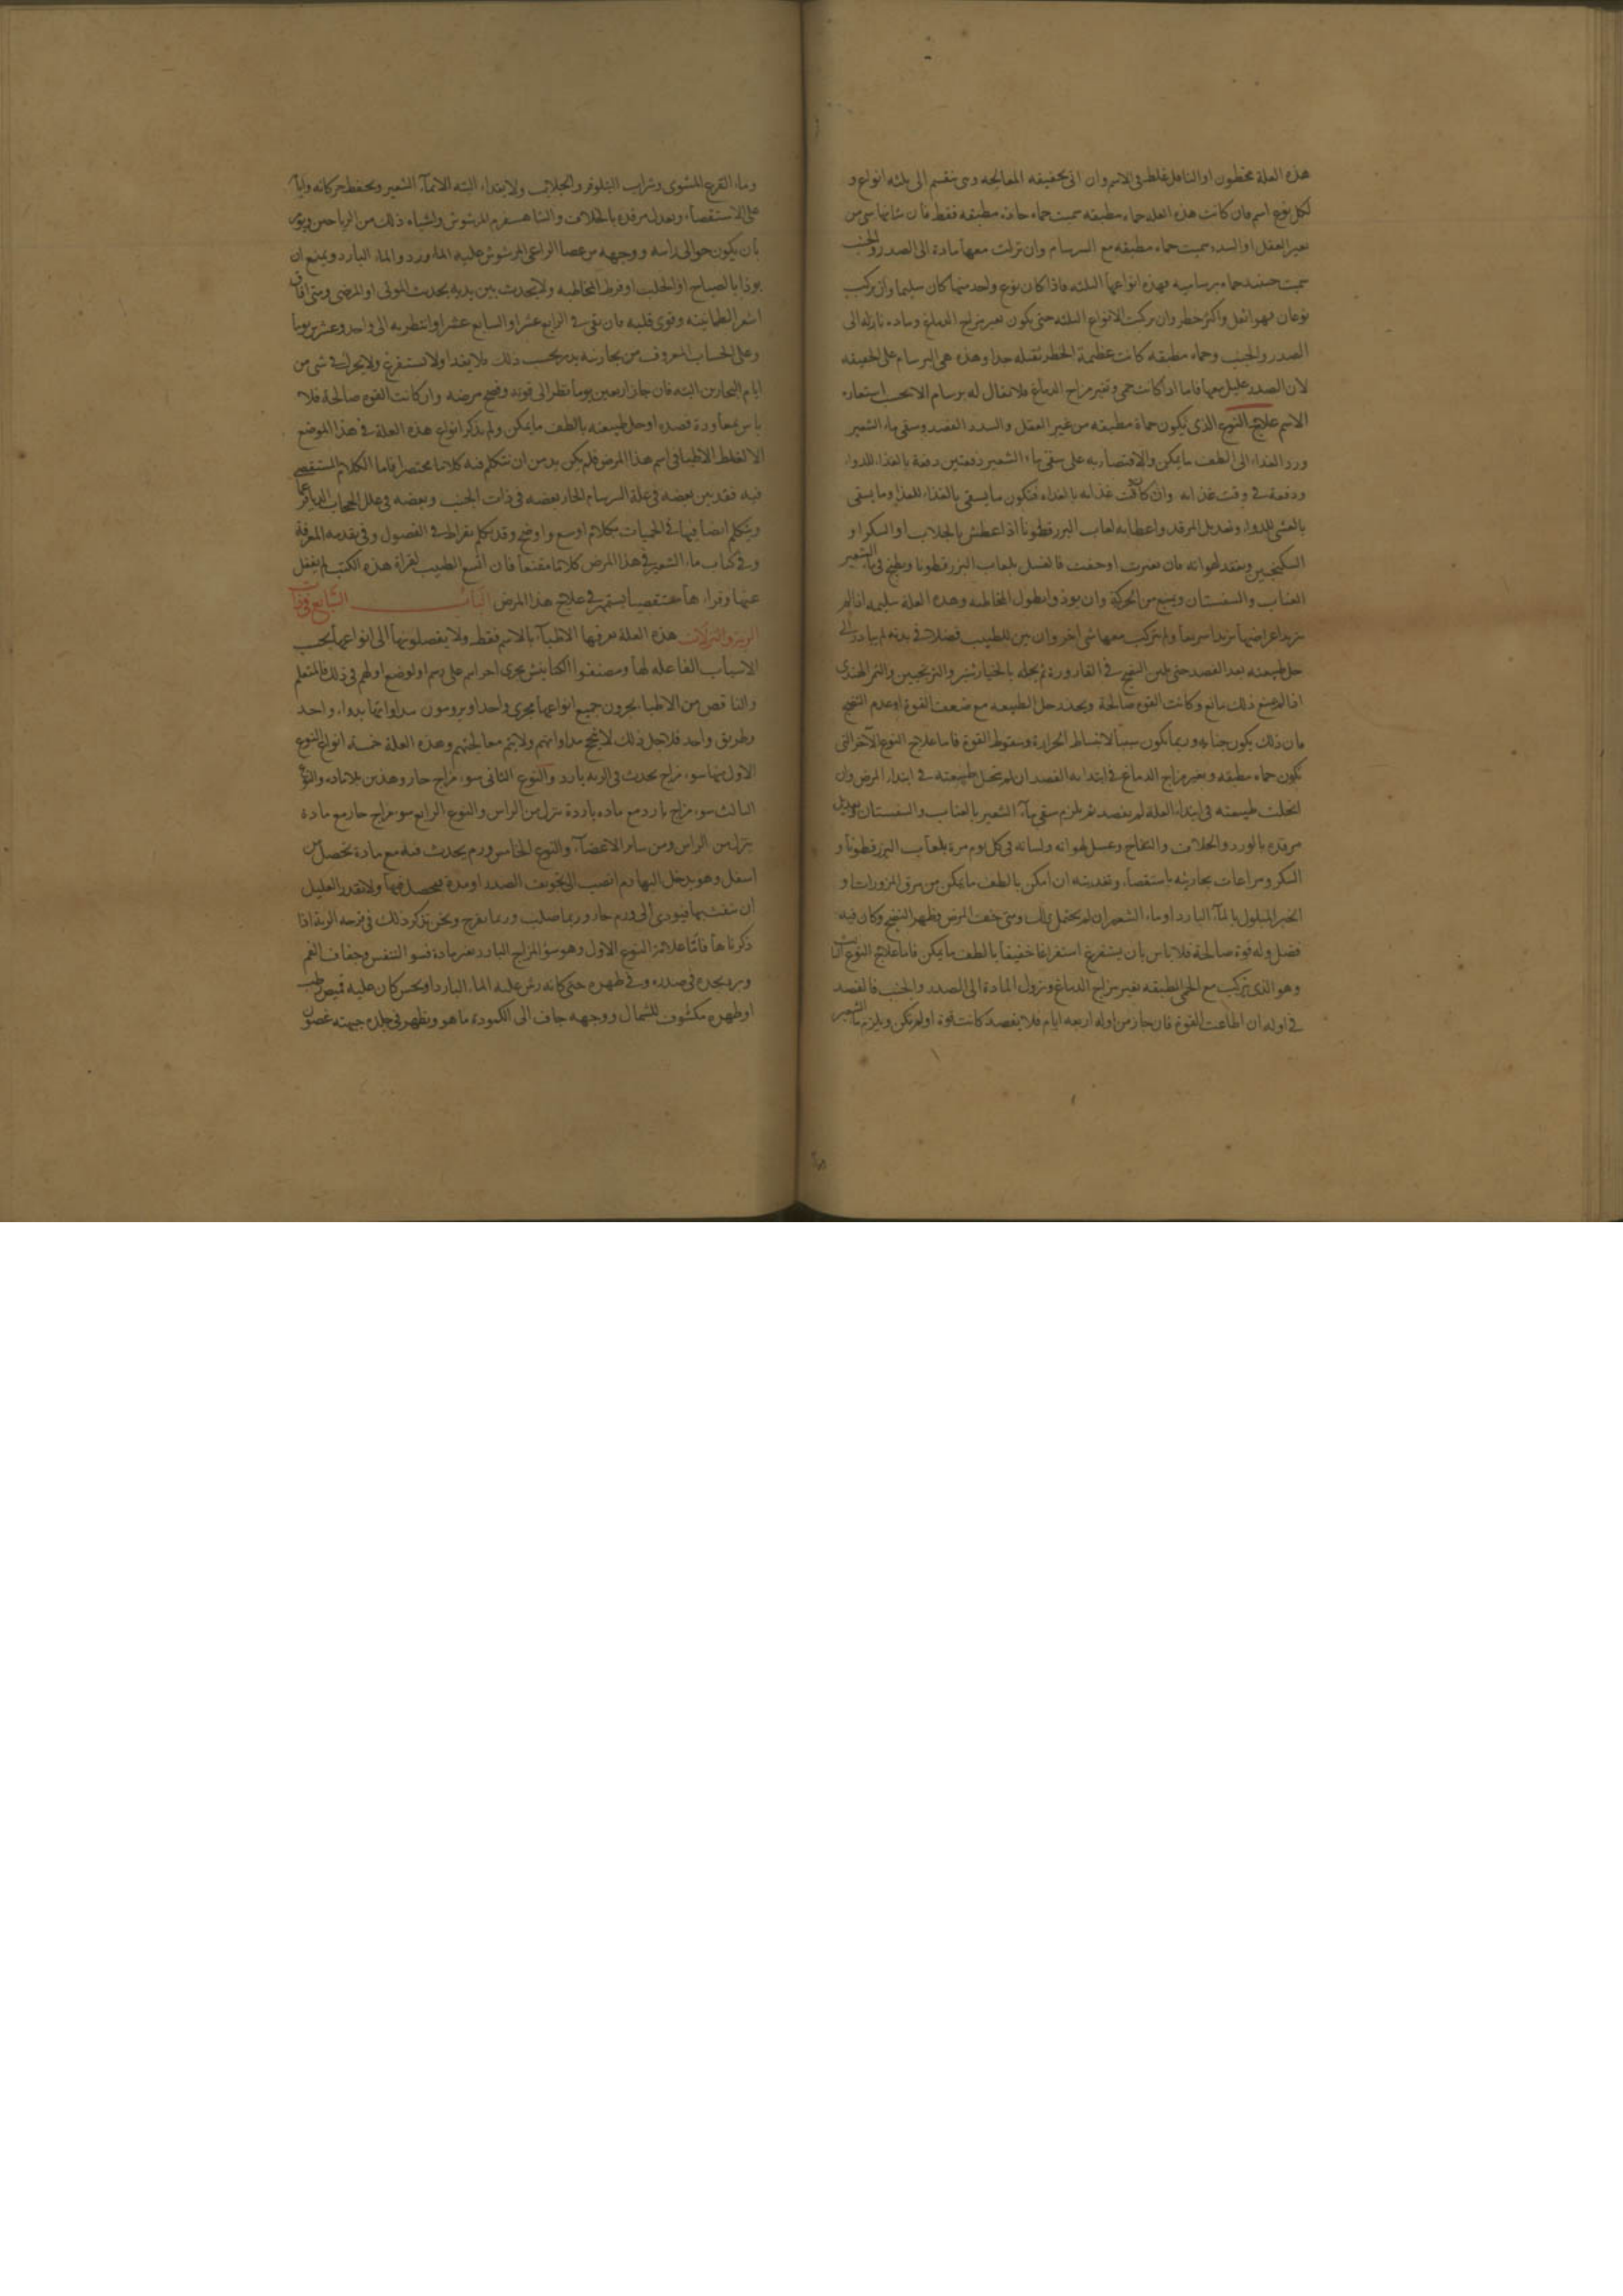 هذه العلة مخطون او الناقل غلط في الاسم وان اتى بحقيقه المعالجه وهى تنقسم الى ثلثه انواع و
لكل نوع اسم فان كانت هذه العله حماه مطبقه سميت حماه حاده مطبقه فقط فان شابها شى من
تغير العقل او السدد سميت حماه مطبقه مع السرسام وان نزلت معها مادة الى الصدر والجنب
سميت حينئذ حماه برساميه فهذه انواعها الثلثه فاذا كان نوع واحد منها كان سليما وان تركب
نوعان فهو اثقل واكثر خطر وان تركبت الانواع الثلثه حتى يكون تغير مزاج الدماغ وماده نازله الى
الصدر والجنب وحماه مطبقه كانت عظيمة الخطر ثقيله جدا وهذه هى البرسام على الحقيقه
لان الصدر عليل معها فاما اذا كانت حمى وتغير مزاج الدماغ فلا يقال له برسام الا بحسب استعاره
الاسم علاج النوع الذى يكون حماة مطبقه من غير العقل والسدد الفصد وسقى ماء الشعير
ورد الغذاء الى الطف ما يمكن والاقتصار به على سقى ماء الشعير دفعتين دفعة بالغداء للدواء
ودفعة فى وقت غذائه وان كان وقت غذائه بالغداه فيكون ما يسقى بالغداء للغذا وما يسقى
بالعشى للدواء وتعديل المرقد واعطائه لعاب البزر قطونا اذا عطش بالجلاب او السكر او
السكنجبين وتفقد لهواته فان تغيرت او جفت فالغسل بلعاب البزر قطونا ويطبخ فى ماء الشعير
العناب والسفستان ويمنع من الحركة وان يوذ وامطول المخاطبه وهذه العلة سليمه اذا لم
تزيد اعراضها تزيدا سريعا ولم يتركب معها شى اخر وان تبين للطبيب فضلا فى بدنه لم يبادر الى
حل طبيعته بعد الفصد حتى يتبين النضج فى القارورة ثم يحله بالخيار شنبر والترنجبين والتمر الهندى
اذا لم يمنع ذلك مانع وكانت القوه صالحة ويحذر حل الطبيعه مع ضعف القوة او عدم النضج
فان ذلك يكون جنايه وربما يكون سببا لانبساط الحرارة وسقوط القوة فاما علاج النوع الآخر التى
تكون حماه مطبقه وتغير مزاج الدماغ فى ابتدائه الفصد ان لم تنحل طبيعته فى ابتداء المرض وان
انحلت طبيعته فى ابتداء العلة لم يفصد ثم يلزم سقى ماء الشعير بالعناب والسفستان وتعديل
مرقده بالورد والخلاف والتفاح وغسل لهواته ولسانه فى كل يوم مرة بلعاب البزر قطونا و
السكر ومراعات بحارينه باستقصاء وتغذيته ان امكن بالطف ما يمكن من مرق المزورات او
الخبز المبلول بالماء البارد او ماء الشعير ان لم يحتمل ذلك ومتى خفت المرض وظهر النضج وكان فيه
فضل وله قوة صالحة فلا باس بان يستفرغ استفراغا خفيفا بالطف ما يمكن فاما علاج النوع الثالث
وهو الذى يتركب مع الحمى المطبقه تغير مزاج الدماغ ونزول المادة الى الصدر والجنب فالفصد
فى اوله ان اطاعت القوة فان جاز من اوله اربعه ايام فلا يفصد كانت قوة او لم تكن ويلزم ماء الشعير
وماء القرع المشوى وشراب النيلوفر والجلاب ولا يغذاء البته الا بماء الشعير ويحفظ حركاته واياه
على الاستقصاء ويعدل مرقده بالخلاف والشاهسفرم المرشوش واشباه ذلك من الرياحين ويومر
بان يكون حوالى راسه ووجهه من عصا الراعى المرشوش عليه الماورد والماء البارد ويمنع ان
يوذا بالصياح او الجلب او فرط المخاطبه ولا يتحدث بين يديه بحديث الموتى او المرضى ومتى افاق
اشعر الطمانينه وقوى قلبه فان بقى فى الرابع عشر او السابع عشر او انتظر به الى واحد وعشرين يوما
وعلى الحساب المعروف من بحارينه يدبر بحسب ذلك فلا يغذا ولا يستفرغ ولا يحرك فى شى من
ايام البحارين البته فان جاز اربعين يوما نظر الى قوته ونضج مرضه وان كانت القوه صالحة فلا
باس بمعاودة فصده او حل طبيعته بالطف ما يمكن ولم يذكر انواع هذه العلة فى هذا الموضع
الا لغلط الاطبا فى اسم هذا المرض فلم يكن بد من ان نتكلم فيه كلاما مختصرا فاما الكلام المستقصى
فيه فقد بين بعضه فى علة السرسام الحار بعضه فى ذات الجنب وبعضه فى علل الحجاب الديافرغما
ويتكلم ايضا فيها فى الحميات بكلام اوسع واوضح وقد تكلم بقراط فى الفصول وفى تقدمه المعرفة
وفى كتاب ماء الشعير فى هذا المرض كلاما مقنعا فان اتسع الطبيب لقراة هذه الكتب لم يغفل
عنها وقراءها مستقصيا يستمهر فى علاج هذا المرض الباب السابع فى
الربو والنزلات هذه العلة تعرفها الاطباء بالاسم فقط ولا يفصلونها الى انواعها بحسب
الاسباب الفاعله لها ومصنفوا الكنانيش يجرى اجراهم على رسم اولوضع اولهم فى ذلك فالمتعلم
والناقص من الاطبا يجرون جميع انواعها مجرى واحدا ويرومون مداواتها بدواء واحد
وطريق واحد فلاجل ذلك لا ينجح مداواتهم ولا يتم معالجتهم وهذه العلة خمسة انواع النوع
الاول منها سوء مزاج يحدث فى الريه بارد والنوع الثانى سوء مزاج حار وهذين بلا ماده والنوع
الثالث سوء مزاج بارد مع ماده باردة تنزل من الراس والنوع الرابع سوء مزاج حار مع مادة
ينزل من الراس ومن سائر الاعضاء والنوع الخامس ورم يحدث فيه مع مادة تحصل من
اسفل وهو يدخل اليها دم انصب الى تجويف الصدر او مدة فيحصل فيها ولا يقدر العليل
ان ينفث بها فيودى الى ورم حار وربما صلب وربما يقرح ونحن نذكر ذلك فى قرحه الريه اذا
ذكرناها فاما علامة النوع الاول وهو سو المزاج البارد بغير مادة فسو التنفس وجفاف الفم
وبرد يجده فى صدره وفى ظهره حتى كانه رش عليه الماء البارد او يحس كان عليه قميص رطب
او ظهره مكشوف للشمال ووجهه جاف الى الكمودة ما هو ويظهر فى جلده جبهته غضون